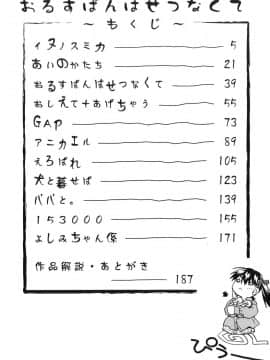 おるすばんはせつなくて
～もくじ～
イヌノスミカ 5
あいのかたち 21
おるすばんはせつなくて 39
おしえて+あげちゃう 55
GAP 73
アニカエル 89
えろばれ 105
犬と暮せば 123
パパと。 139
153000 155
よしみちゃん係 171
作品解説・あとがき
187
ぴぅー